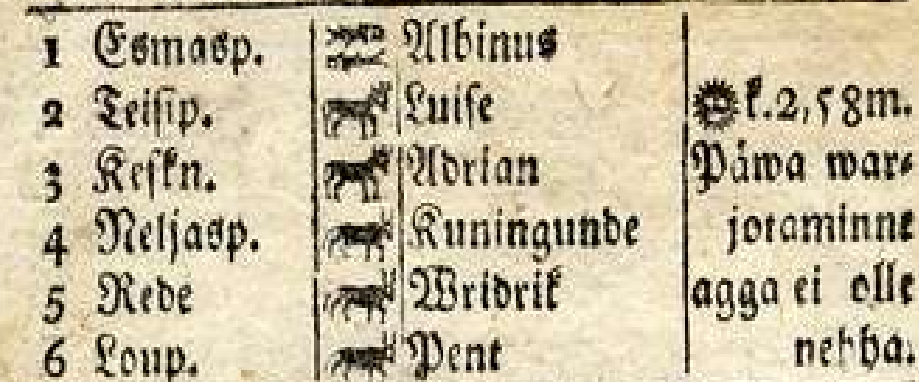 1 Esmasp. Albinus
2 Teisip. Luise k.2,58m.
3 Keskn. Adrian Päwa war-
4 Neljasp. Kuningunde joraminne
5 Rede Wridrik agga ei olle
6 Loup. Pent nehha.